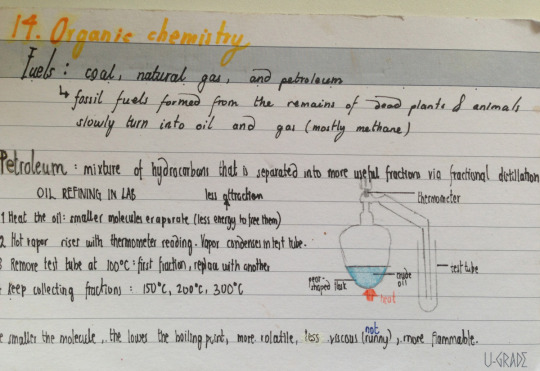 14. Organic chemistry
Fuels: coal, natural gas, and petroleum
↳ fossil fuels formed from the remains of dead plants & animals
slowly turn into oil and gas (mostly methane)
Petroleum: mixture of hydrocarbons that is separated into more useful fractions via fractional distillation
OIL REFINING IN LAB
less attraction
thermometer
1 Heat the oil: smaller molecules evaporate (less energy to free them)
2 Hot vapor rises with thermometer reading. Vapor condenses in test tube.
3 Remove test tube at 100°C: first fraction, replace with another
Keep collecting fractions: 150°C, 200°C, 300°C
pear-shaped flask
crude oil
test tube
heat
e smaller the molecule, the lower the boiling point, more volatile, less viscous (not runny), more flammable.
U-GRADE